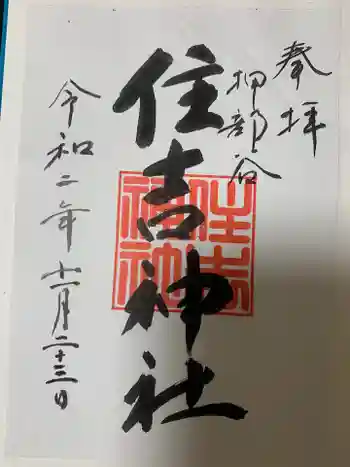 奉拝
押部谷
住吉神社
住吉神社
令和二年十一月二十三日